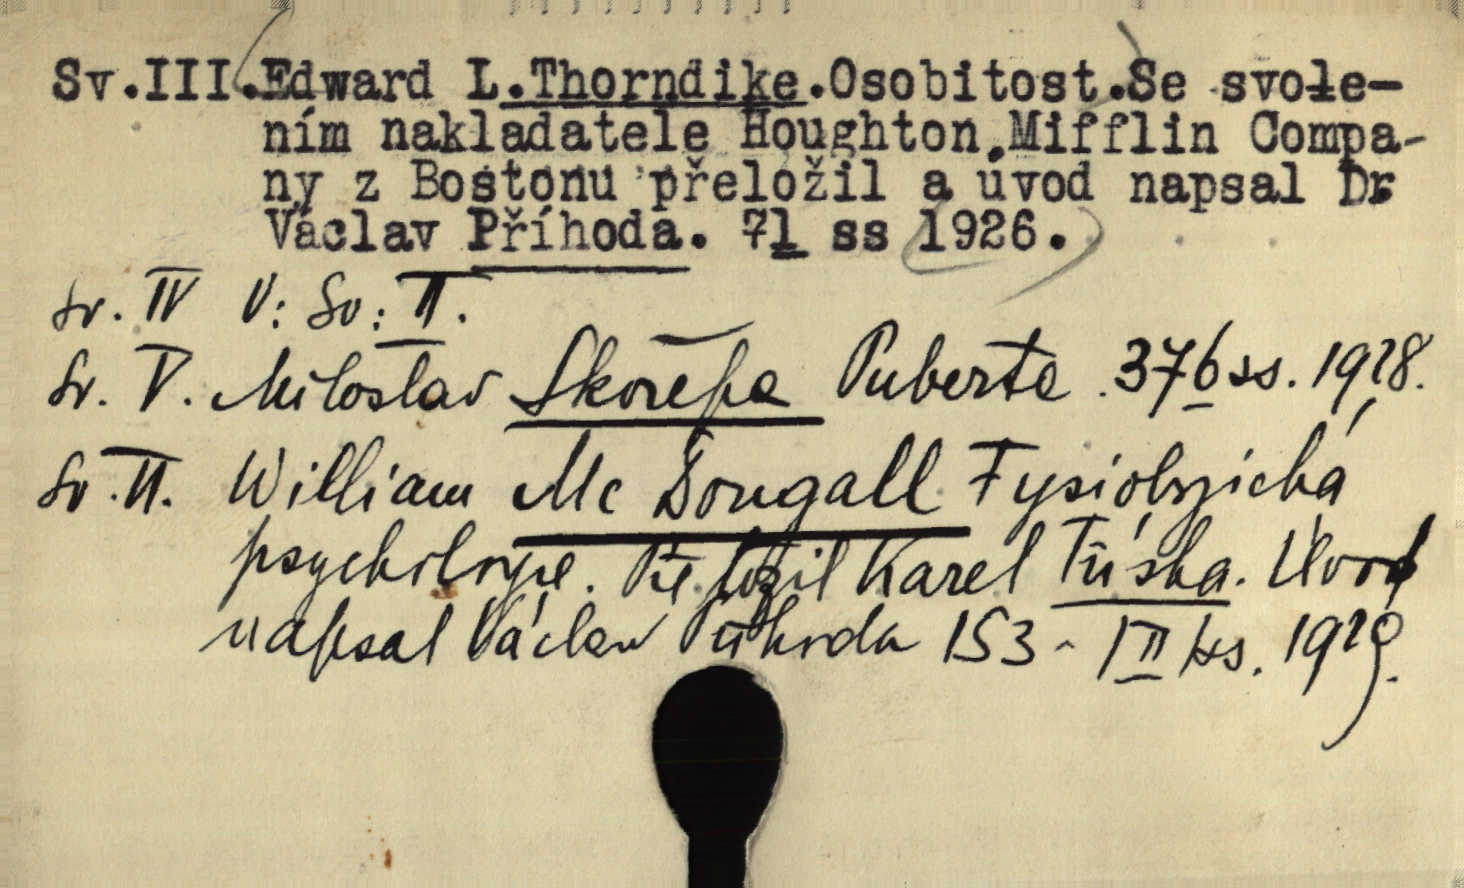 Sv.III.Edward L.Thorndike.Osobitost.Se svole-
ním nakladatele Houghton.Mifflin Compa-
ny z Bostonu přeložil a úvod napsal Dr
Václav Příhoda. 71 ss 1926.
Sv. IV V: Sv: II.
Sv. V. Miloslav Skořepa Puberta. 376 ss. 1928.
Sv. VI. William Mc Dougall Fysiologická
psychologie. Přeložil Karel Tůska. Úvod
napsal Václav Příhoda 153 - |II| ss. 1929.